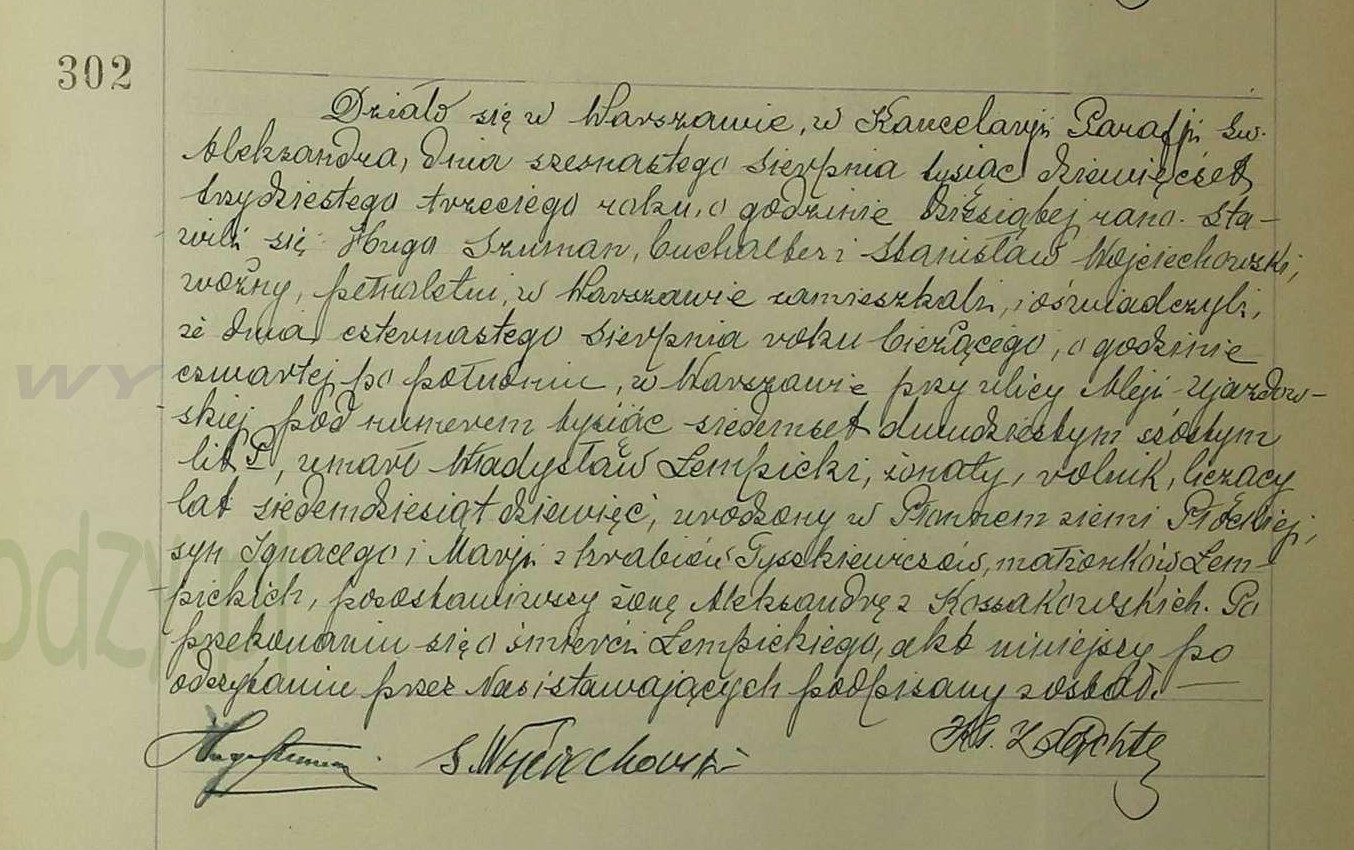 302
Działo się w Warszawie, w Kancelarji Parafji Św.
Aleksandra, dnia szesnastego Sierpnia tysiąc dziewięćset
trzydziestego trzeciego roku, o godzinie dziesiątej rano. Sta-
wili się: Hugo Szuman, buchalter i Stanisław Wojciechowski,
woźny, pełnoletni, w Warszawie zamieszkali, i oświadczyli,
że dnia czternastego Sierpnia roku bieżącego, o godzinie
czwartej po południu, w Warszawie przy ulicy Aleji Ujazdow-
skiej pod numerem tysiąc siedemset dwudziestym szóstym
lit, umarł Władysław Łempicki, żonaty, rolnik, liczący
lat siedemdziesiąt dziewięć, urodzony w ziemi Płockiej,
syn Ignacego i Marji z hrabiów Tyszkiewiczów, małżonków Łem-
pickich, pozostawiwszy żonę Aleksandrę z Kossakowskich. Po
przekonaniu się o śmierci Łempickiego, akt niniejszy po
odczytaniu przez Nas i stawających podpisany został.
Hugo Szuman S. Wojciechowski Ks.
WY
odzy.pl